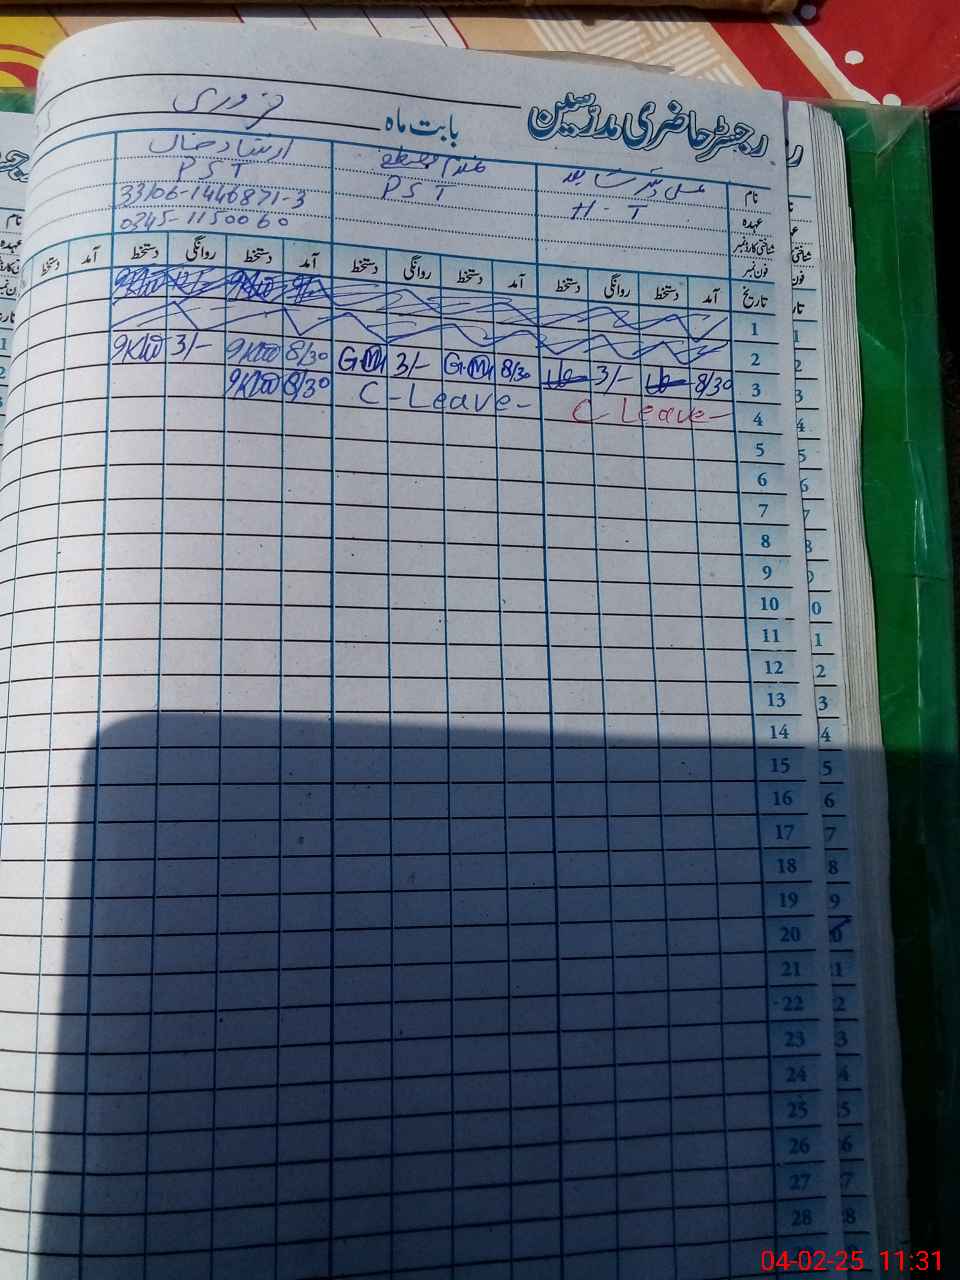 رجسٹر حاضری مدرسین بابت ماہ فروری
نام ارشاد خان
عہدہ H-T PST PST
شناختی کارڈ نمبر 33106-1446871-3
فون نمبر 0345-1150060
تاریخ آمد دستخط روانگی دستخط آمد دستخط روانگی دستخط آمد دستخط روانگی دستخط آمد دستخط
1
2
3 8/30 3/- 8/30 G.M 3/- G.M 8/30 3/-
4 C Leave- C-Leave- 8/30
5
6
7
8
9
10
11
12
13
14
15
16
17
18
19
20
21
22
23
24
25
26
27
28
04-02-25 11:31